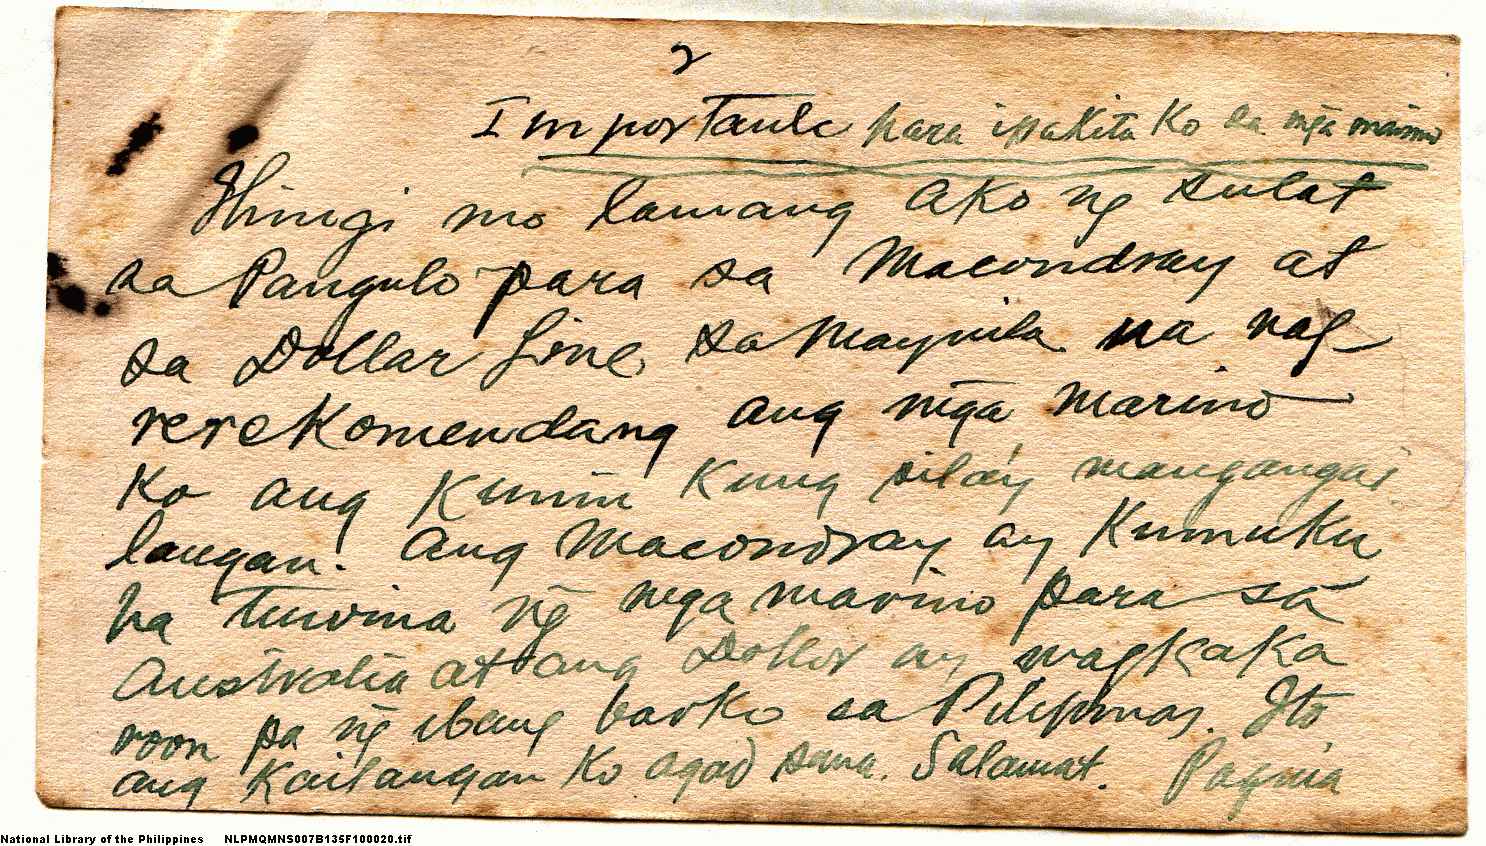 2
Importante para ipakita ko sa mga marino
Ihingi mo lamang ako ng sulat
sa Pangulo para sa Macondray at
sa Dollar Line sa Maynila na nag-
rerekomendang ang mga marino
ko ang kunin kung sila'y mangangai
langan. Ang Macondray ay kumuku
ha tuwina ng mga marino para sa
Australia at ang Dollar ay magkaka
roon pa ng ibang barko sa Pilipinas. Ito
ang kailangan ko agad sana. Salamat.
National Library of the Philippines NLPMQMNS007B135F100020.tif